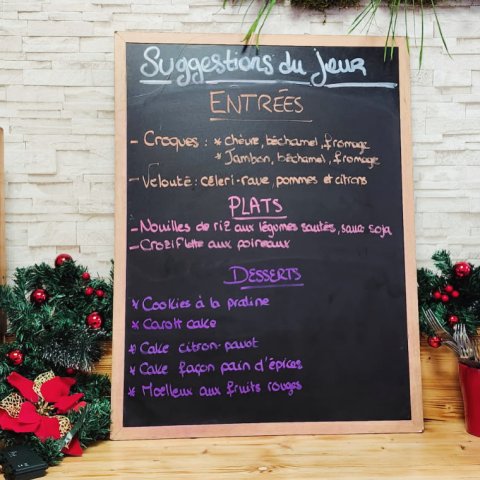 Suggestions du jour
ENTRÉES
- Croques : * chèvre, béchamel, fromage
* Jambon, béchamel, fromage
- Velouté : céleri-rave, pommes et citrons
PLATS
- Nouilles de riz aux légumes sautés, sauce soja
- Croziflette aux poireaux
DESSERTS
* Cookies à la praline
* Carott cake
* Cake citron-pavot
* Cake façon pain d'épices
* Moelleux aux fruits rouges